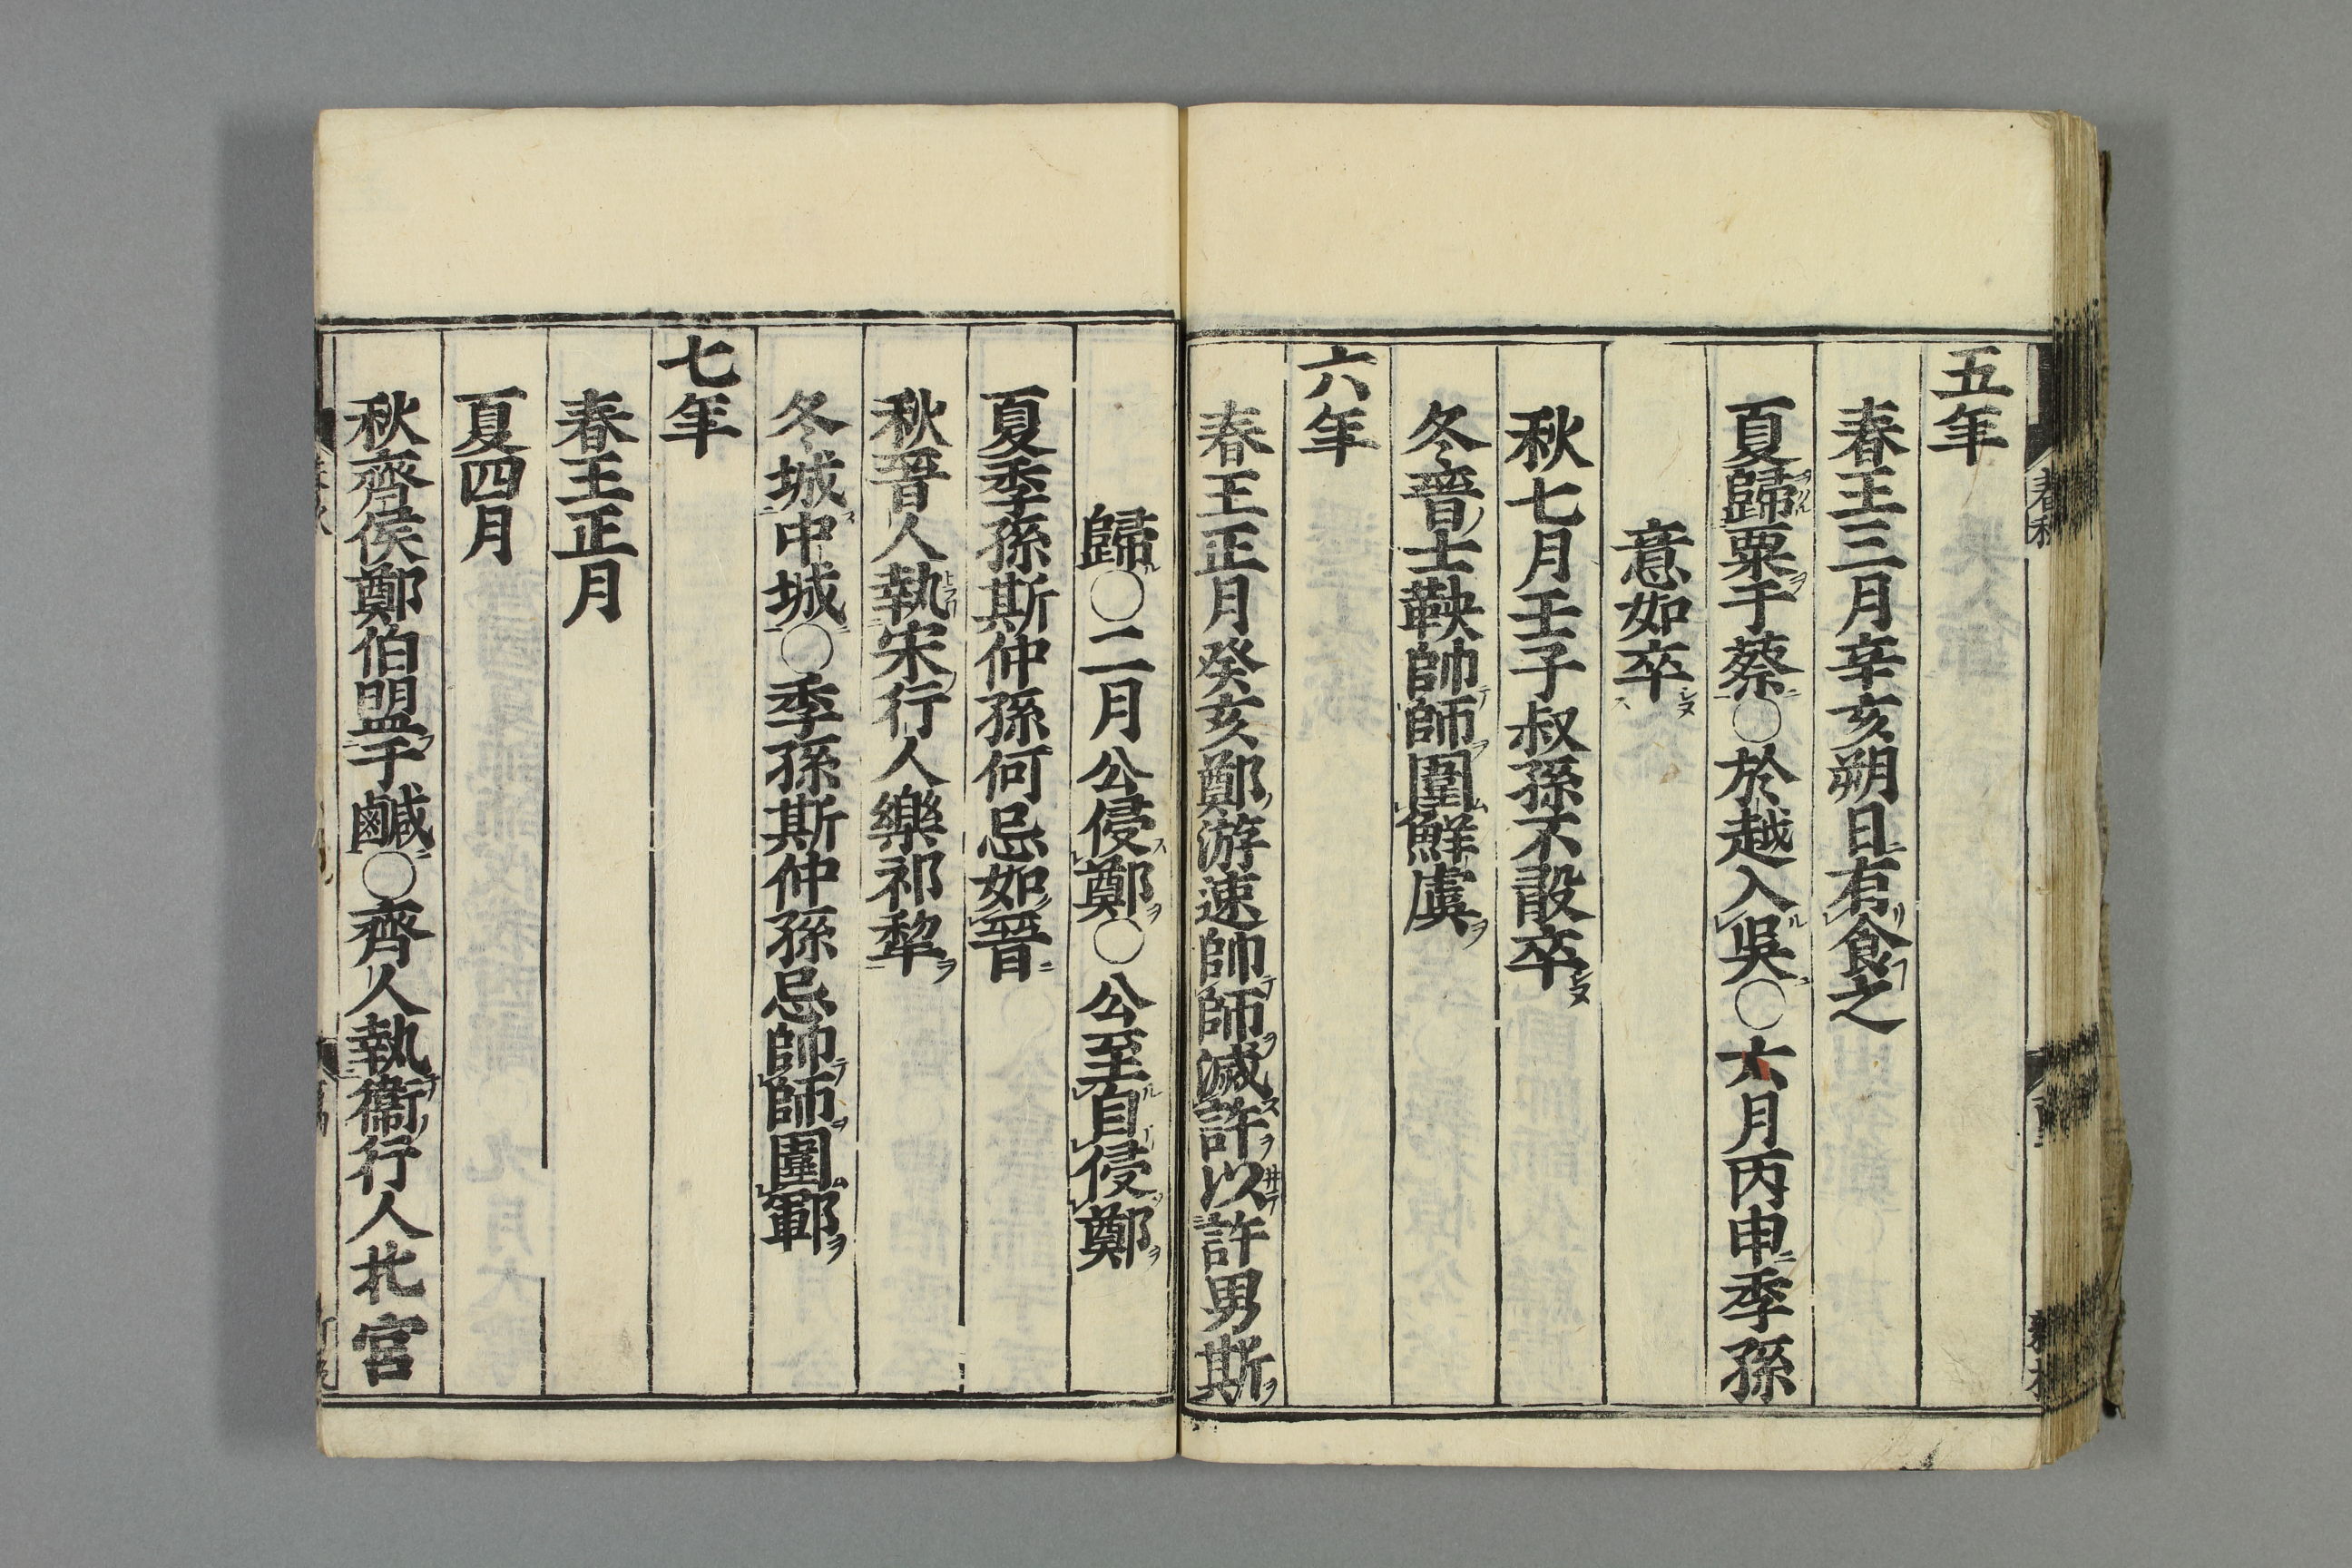 五年
春王三月辛亥朔日有食之
夏歸粟于蔡○於越入吳○六月丙申季孫
意如卒
秋七月壬子叔孫不敢卒
冬晉士鞅帥師圍鮮虞
六年
春王正月癸亥鄭游速帥師滅許以許男斯
歸○二月公侵鄭○公至自侵鄭
夏季孫斯仲孫何忌如晉
秋晉人執宋行人樂祁犂
冬城中城○季孫斯仲孫忌帥師圍鄆
七年
春王正月
夏四月
秋齊侯鄭伯盟于鹹○齊人執衞行人北宮